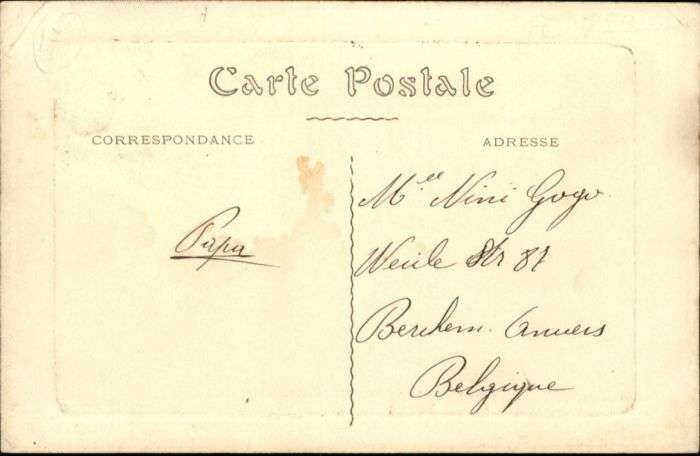 Carte Postale
CORRESPONDANCE
ADRESSE
Papa
Mlle Nini Gogo
Str 87
Berchem. Anvers
Belgique